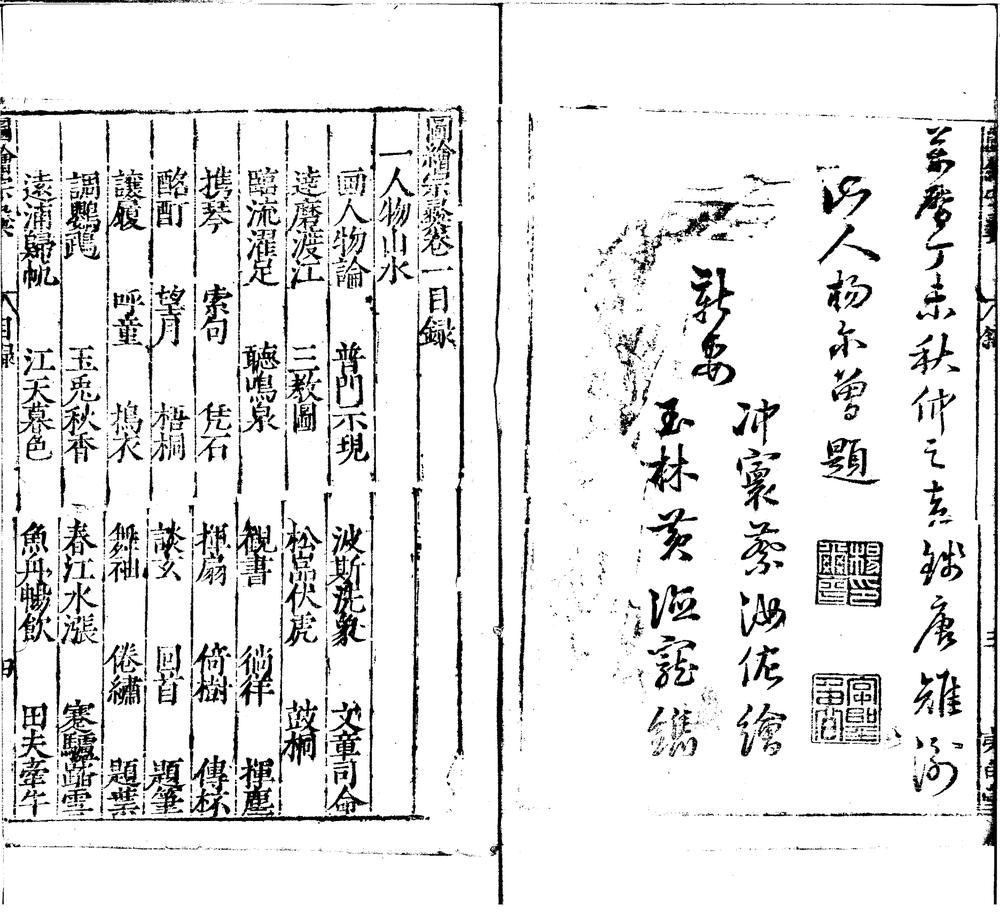 萬曆丁未秋仲之吉錢唐雉衡
山人楊爾曾題
新安
冲寰蔡汝佐繪
玉林黃德寵鐫
圖繪宗彝卷一目録
一人物山水
画人物論 普門示現 波斯洗象 文童司命
達磨渡江 三教圖 松嵓伏虎 鼓桐
臨流濯足 聽鳴泉 觀書 徜徉 揮麈
携琴 索句 凭石 揮扇 倚樹 傳杯
酩酊 望月 梧桐 談玄 回首 題筆
讓履 呼童 搗衣 舞袖 倦繡 題葉
調鸚鵡 玉兎秋香 春江水漲 蹇驢踏雪
遠浦歸帆 江天暮色 魚舟暢飲 田夫牽牛
圖繪宗彝 目録